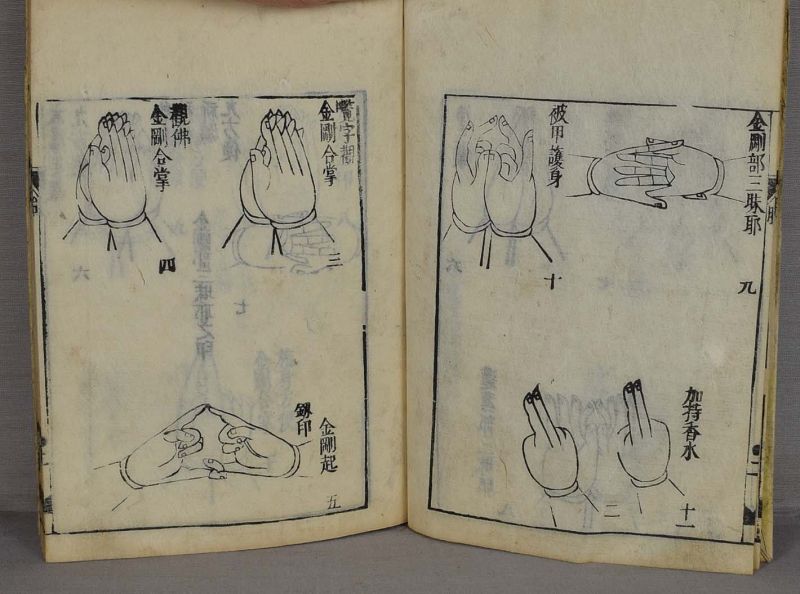 金剛部三昧耶
九
被甲護身
十
加持香水
十一
二
金剛合掌
三
觀佛
金剛合掌
四
金剛起
印
五